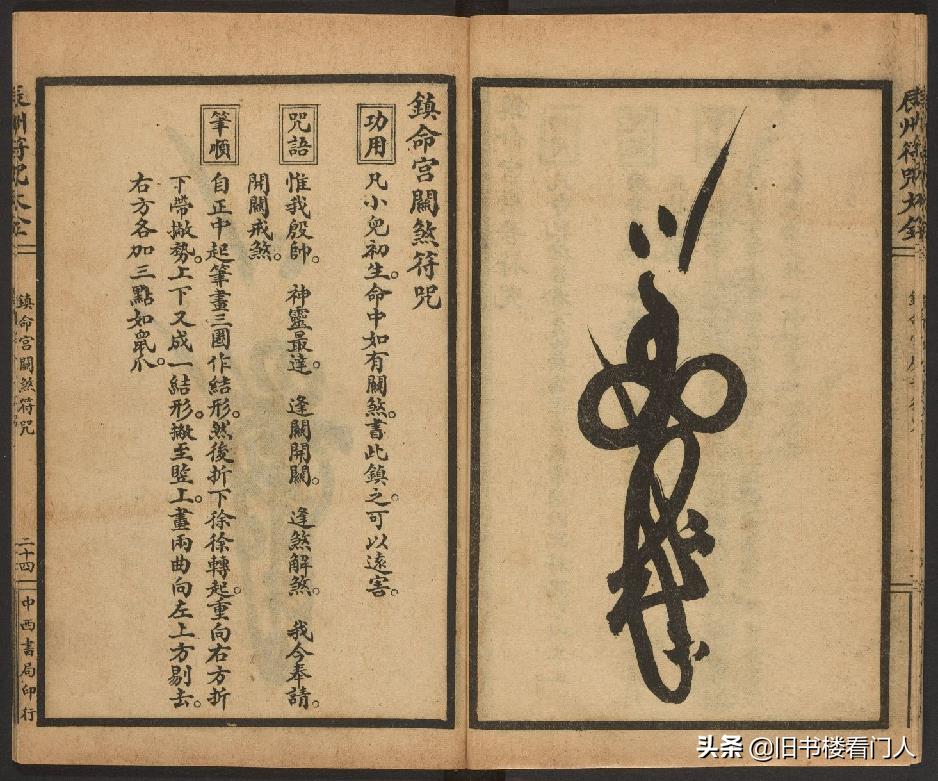 辰州符咒大全
鎮命宮關煞符咒
功用
凡小兒初生。命中如有關煞。書此鎮之。可以遠害。
咒語
惟我殷帥。神靈最達。逢關開關。逢煞解煞。我今奉請。
開關戒煞。
筆順
自正中起筆畫三圈作結形。然後折下徐徐轉起。重向右方折
下帶撇勢。上下又成一結形。撇至監上。畫兩曲向左上方剔去。
右方各加三點如鼠爪。
辰州符咒大全
鎮命宮關煞符咒
二十四
中西書局印行
头条 @旧书楼看门人